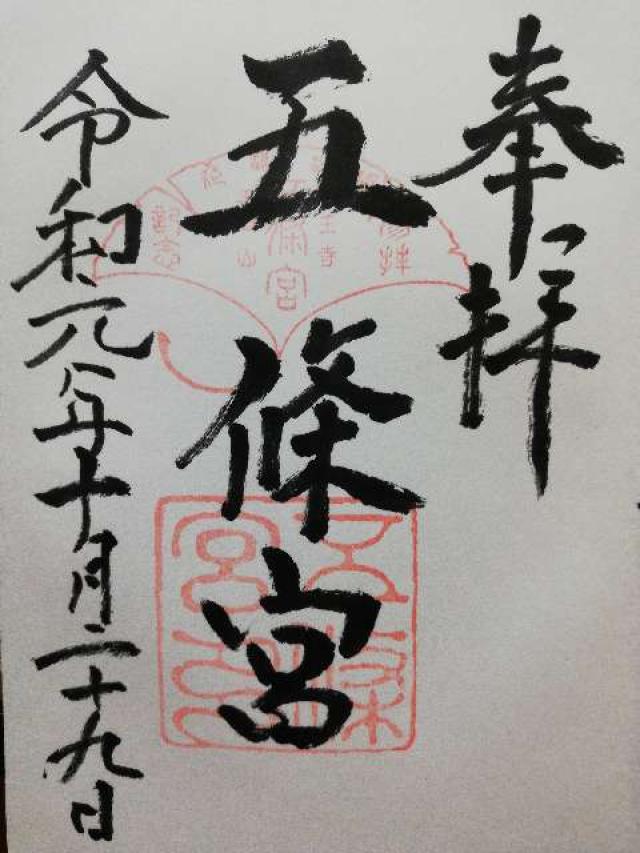 奉拝
五條宮
令和元年十月二十九日
五條宮